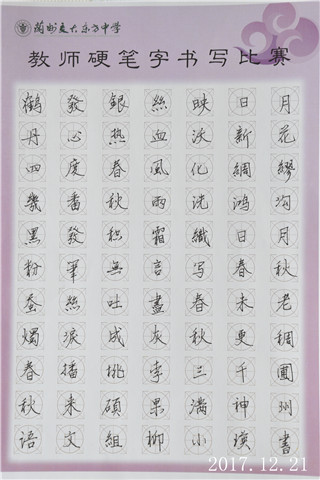 蘭州交大东方中学
教师硬笔字书写比赛
鶴發銀絲映日月
丹心热血沃新花
四度春風化綢繆
幾番秋雨洗鴻沟
黑發积霜織日月
粉筆無言写春秋
蚕絲吐盡春未老
燭淚成灰秋更稠
春播桃李三千圃
秋来碩果满神州
语文組柳小瑛書
2017.12.21